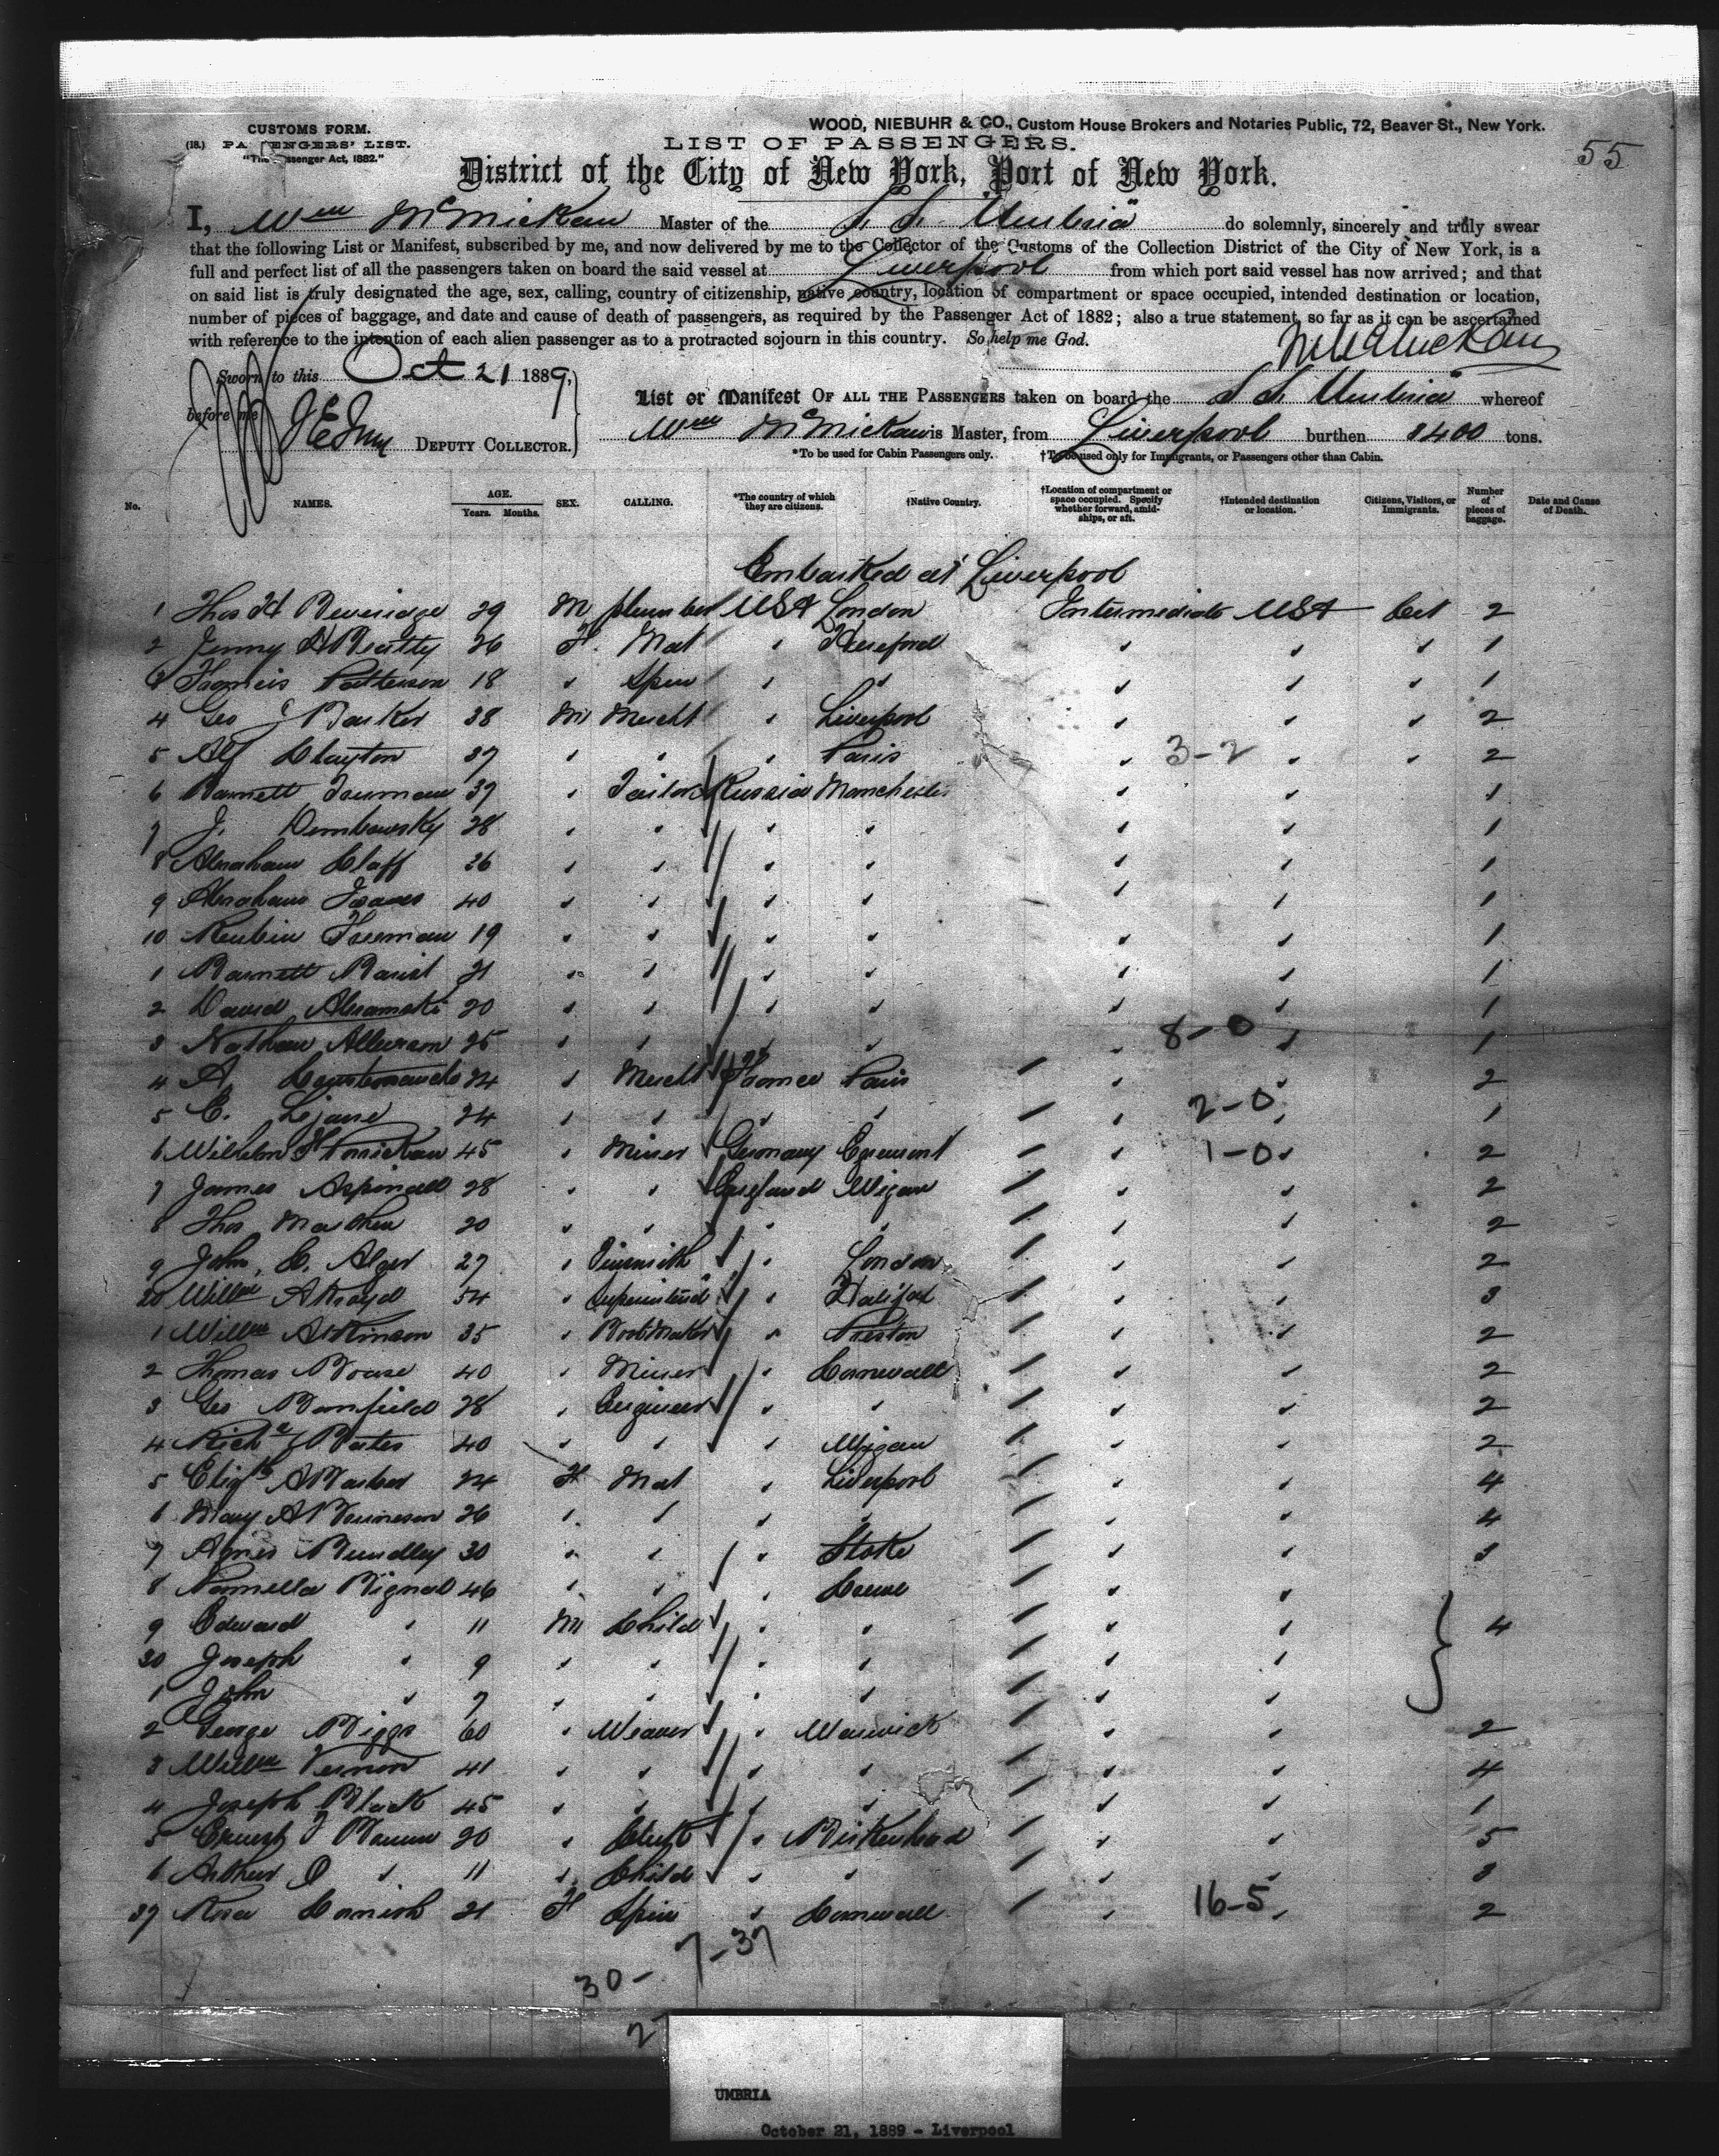 WOOD, NIEBUHR & CO., Custom House Brokers and Notaries Public, 72, Beaver St., New York.
CUSTOMS FORM.
(18.) PASSENGERS' LIST.
"The Passenger Act, 1882."
LIST OF PASSENGERS.
55
District of the City of New York, Port of New York.
I, Wm McMickan Master of the S. S. "Umbria" do solemnly, sincerely and truly swear
that the following List or Manifest, subscribed by me, and now delivered by me to the Collector of the Customs of the Collection District of the City of New York, is a
full and perfect list of all the passengers taken on board the said vessel at Liverpool from which port said vessel has now arrived; and that
on said list is truly designated the age, sex, calling, country of citizenship, native country, location of compartment or space occupied, intended destination or location,
number of pieces of baggage, and date and cause of death of passengers, as required by the Passenger Act of 1882; also a true statement, so far as it can be ascertained
with reference to the intention of each alien passenger as to a protracted sojourn in this country. So help me God.
W McMickan
Sworn to this Oct 21 1889,
before me
DEPUTY COLLECTOR.
List or Manifest OF ALL THE PASSENGERS taken on board the S. S. Umbria whereof
Wm McMickan is Master, from Liverpool burthen 8400 tons.
*To be used for Cabin Passengers only. †To be used only for Immigrants, or Passengers other than Cabin.
No. NAMES. AGE. Years. Months. SEX. CALLING. *The country of which they are citizens. †Native Country. †Location of compartment or space occupied. Specify whether forward, amidships, or aft. †Intended destination or location. Citizens, Visitors, or Immigrants. Number of pieces of baggage. Date and Cause of Death.
Embarked at Liverpool
1 Thos H Beveridge 29 M plumber USA London Intermediate USA Cit 2
2 Jenny A Beatty 26 F. Mat " Hereford " " " 1
3 Francis Patterson 18 " Spin " " " " " 1
4 Geo J Barker 38 M Mercht " Liverpool " " " 2
5 Alf Clayton 37 " " " Paris " 3-2 " " 2
6 Barnett 39 " Tailor Russia Manchester " " 1
7 J. Dembowsky 28 " " " " " " 1
8 Abraham Claff 36 " " " " " " 1
9 Abraham Isaacs 40 " " " " " " 1
10 Reubin Freeman 19 " " " " " " 1
1 Barnett 21 " " " " " " 1
2 David Abramski 20 " " " " " " 1
3 Nathan 25 " " " " " 8-0 " 1
4 A. 24 " Mercht France Paris " " 2
5 C. Lejane 24 " " " " " 2-0 " 1
6 Wilhelm 45 " Miner Germany Egremont " 1-0 " 2
7 James Aspinall 28 " " England Wigan " " 2
8 Thos 20 " " " " " " 2
9 John C. Alger 27 " " London " " 2
20 Willm Akroyd 54 " Superintend " Halifax " " 3
1 Willm Atkinson 35 " Bootmaker " Preston " " 2
2 Thomas 40 " Miner " Cornwall " " 2
3 Geo Bamfield 28 " Engineer " " " " 2
4 Richd Bates 40 " " " Wigan " " 2
5 Elizth A Barber 24 F Mat " Liverpool " " 4
6 Mary A 26 " " " " " " 4
7 Agnes Brindley 30 " " " Stoke " " 3
8 Pamella Bignal 46 " " " Crewe " "
9 Edward " 11 M Child " " " " 4
30 Joseph " 9 " " " " " "
1 John " 7 " " " " " "
2 George Biggs 60 " Weaver " Warwick " " 2
3 Willm Vernon 41 " " " " " " 4
4 Joseph Black 45 " " " " " " 1
5 Ernest 20 " Clerk " Birkenhead " " 5
6 Arthur O " 11 " Child " " " " 3
37 Rosa Cornish 21 F Spin " Cornwall " 16-5 " 2
7-37
30-
2
UMBRIA
October 21, 1889 - Liverpool